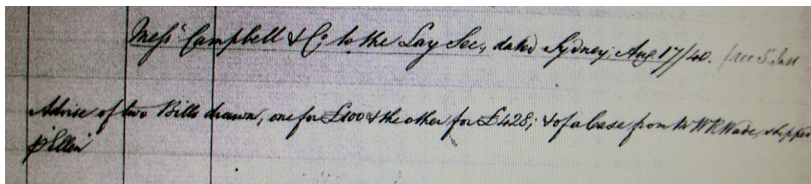 Messrs Campbell & Co. to the Lay Sec., dated Sydney; Aug 17/40. /rec 5 Jan
Advise of two Bills drawn, one for £100 & the other for £428; & of a Case from Mr W R Wade, shipped
p "Ellen"